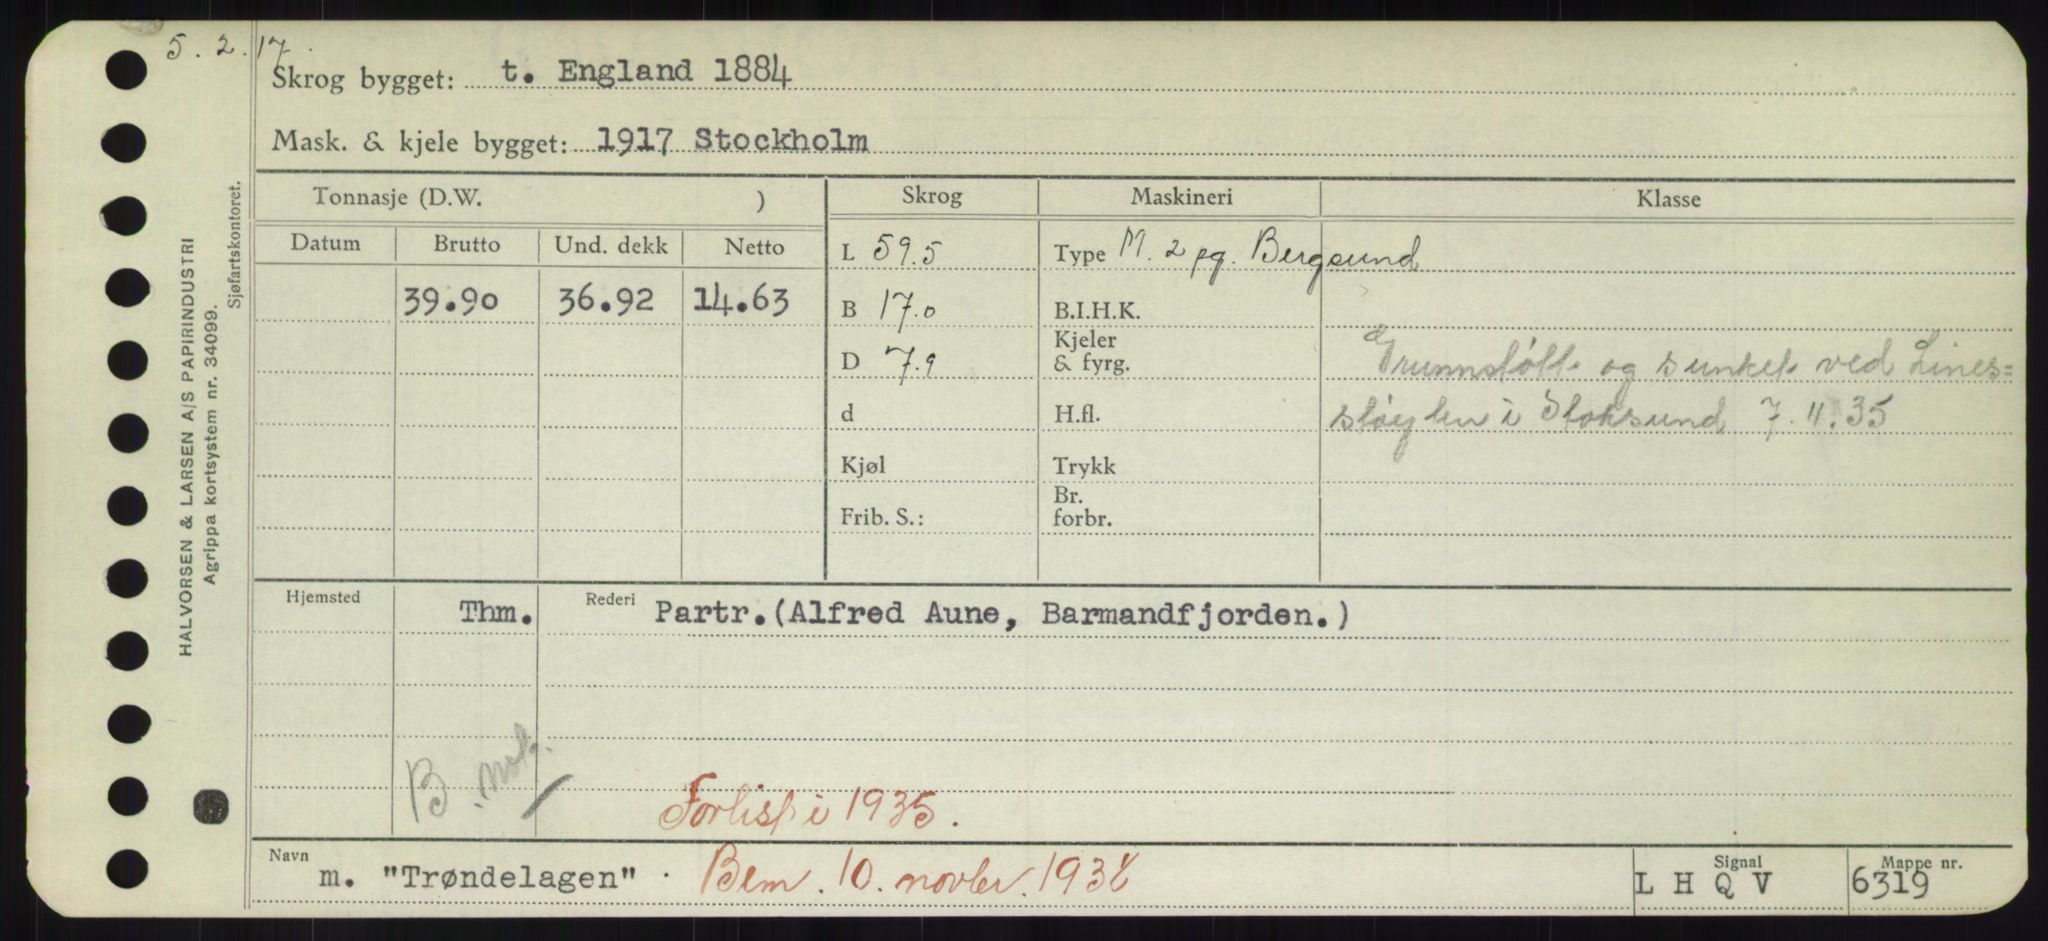 5. 2. 17.
Skrog bygget: t. England 1884
Mask. & kjele bygget: 1917 Stockholm
Tonnasje (D.W. ) Skrog Maskineri Klasse
Datum Brutto Und. dekk Netto
L 59.5 Type M. 2 pg. Bergsund
39.90 36.92 14.63
B 17.0 B.I.H.K.
D 7.9 Kjeler & fyrg. Grunnstøtt og sunket ved Lines=
d H.fl. støylen i Stoksund 7.11.35
Kjøl Trykk
Frib. S.: Br. forbr.
Hjemsted Thm. Rederi Partr.(Alfred Aune, Barmandfjorden.)
B. not.
Forlist i 1935.
Navn m. "Trøndelagen" . Bem. 10. novbr. Signal L H Q V Mappe nr. 6319
HALVORSEN & LARSEN A/S PAPIRINDUSTRI
Agrippa kortsystem nr. 34099.
Sjøfartskontoret.